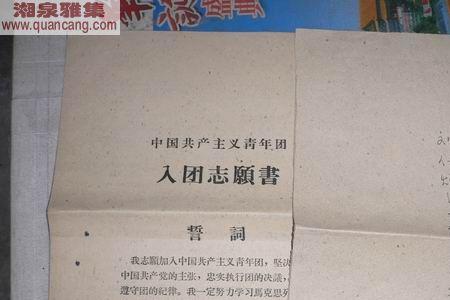 湘泉雅集
www.quancang.com
中国共产主义青年团
入团志願書
誓詞
我志願加入中国共产主义青年团，坚决
中国共产党的主张，忠实执行团的决議，
遵守团的紀律。我一定努力学習馬克思列